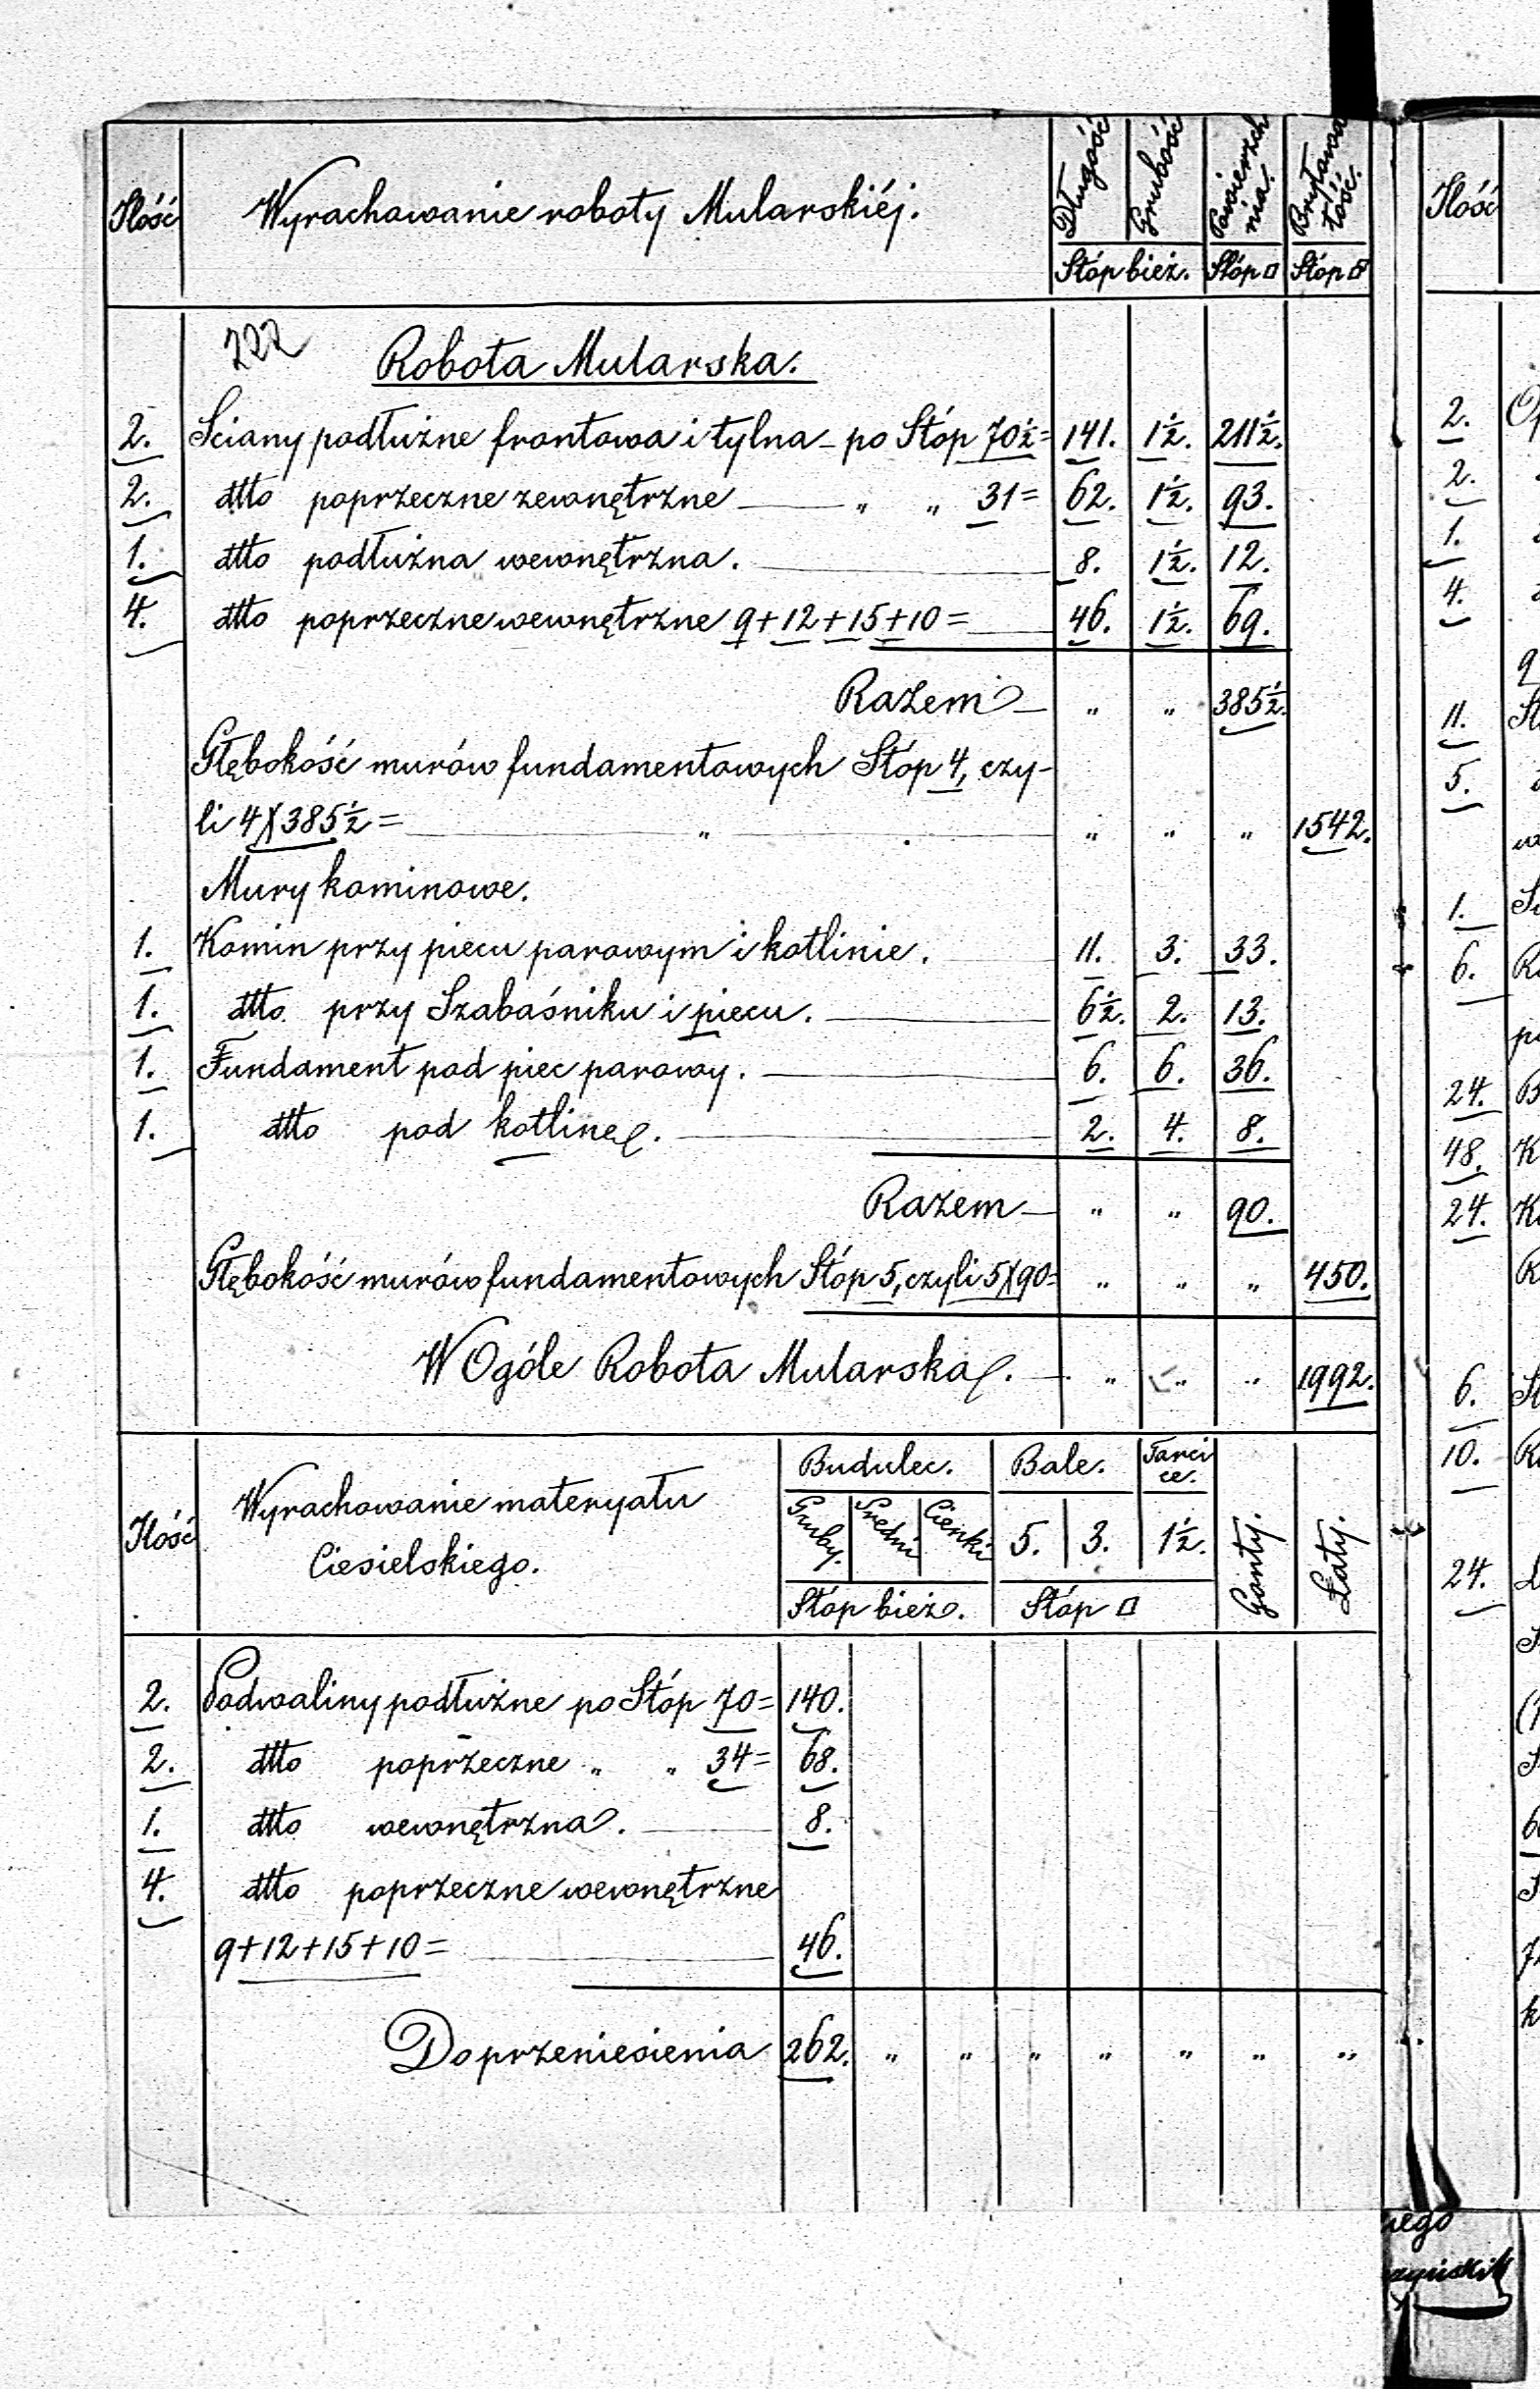 Ilość Wyrachowanie roboty Mularskiéj. Długość Grubość Powierzchnia. Bryłowatość.
Stóp bież. Stóp □ Stóp
222
Robota Mularska.
2. Sciany podłużne frontowa i tylna - po Stóp 70½ = 141. 1½. 211½.
2. dtto poprzeczne zewnętrzne — „ „ 31 = 62. 1½. 93.
1. dtto podłużna wewnętrzna. — 8. 1½. 12.
4. dtto poprzeczne wewnętrzne 9+12+15+10 = — 46. 1½. 69.
Razem — „ „ 385½.
Głębokość murów fundamentowych Stóp 4, czy-
li 4 X 385½ = — „ — „ „ „ 1542.
Mury kominowe.
1. Komin przy piecu parowym i kotlinie. — 11. 3. 33.
1. dtto przy Szabaśniku i piecu. — 6½. 2. 13.
1. Fundament pod piec parowy. — 6. 6. 36.
1. dtto pod kotlinę. — 2. 4. 8.
Razem — „ „ 90.
Głębokość murów fundamentowych Stóp 5, czyli 5 X 90 = „ „ „ 450.
W Ogóle Robota Mularska. — „ „ „ 1992.
Ilość Wyrachowanie materyału Ciesielskiego. Budulec. Bale. Tarcice. Gonty. Łaty.
Gruby. Średni Cienki 5. 3. 1½.
Stóp bież. Stóp □
2. Podwaliny podłużne po Stóp 70 = 140.
2. dtto poprzeczne „ „ 34 = 68.
1. dtto wewnętrzna. — 8.
4. dtto poprzeczne wewnętrzne
9+12+15+10 = — 46.
Do przeniesienia 262. „ „ „ „ „ „ „
Ilość
2.
2.
1.
4.
11.
5.
1.
6.
24.
48.
24.
6.
10.
24.